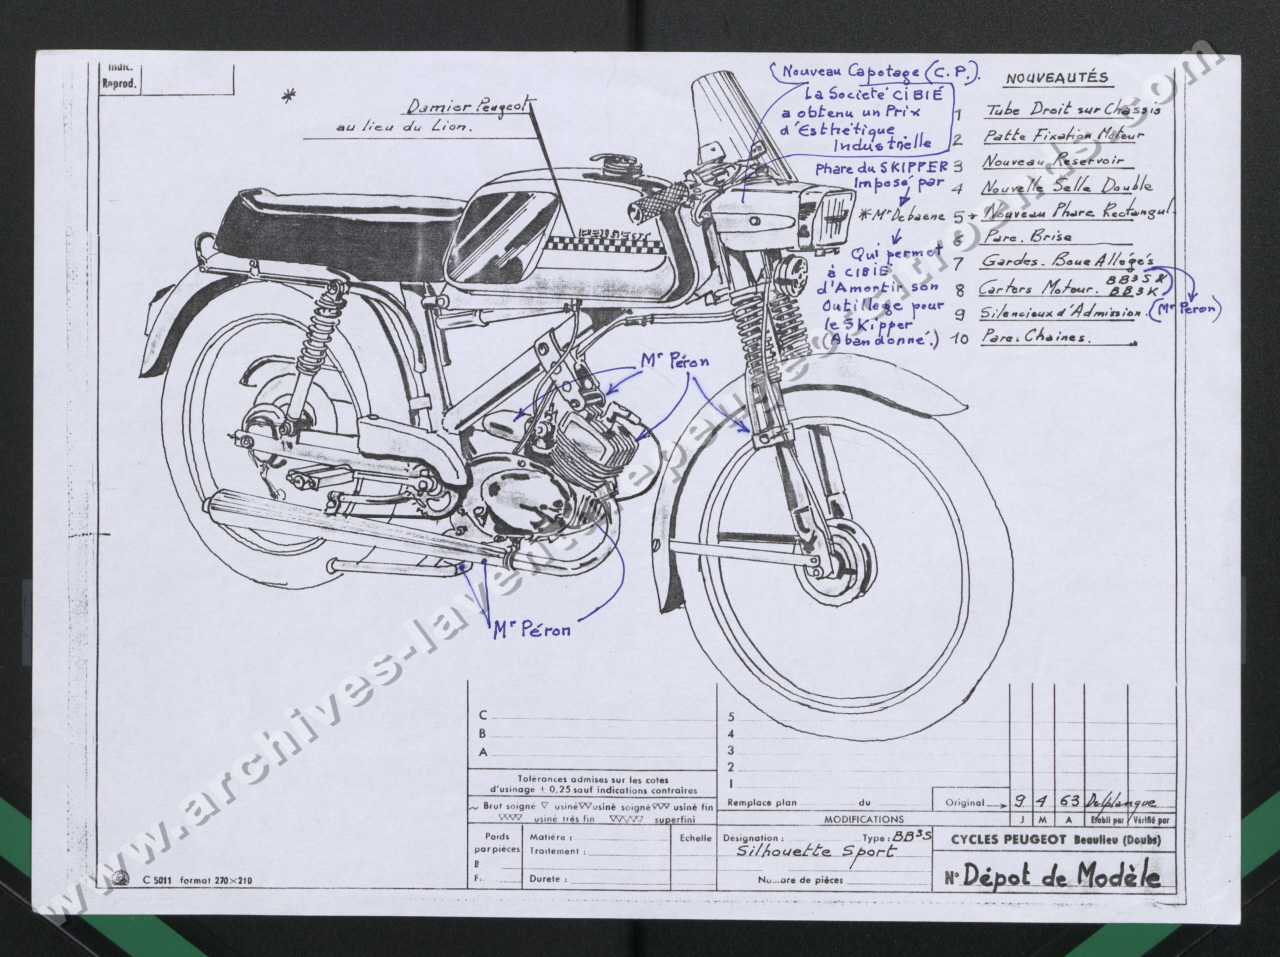 Indic.
Reprod.
*
Damier Peugeot
au lieu du Lion.
Nouveau Capotage (C.P.).
La Société CIBIÉ
a obtenu un Prix
d'Esthétique
Industrielle
Phare du SKIPPER
Imposé par
* Mr Debaene
Qui permet
à CIBIÉ
d'Amortir son
Outillage pour
le SKIPPER
(Abandonné.)
NOUVEAUTÉS
1 Tube Droit sur Chassis
2 Patte Fixation Moteur
3 Nouveau Reservoir
4 Nouvelle Selle Double
5 * Nouveau Phare Rectangul.
6 Pare. Brise
7 Gardes. Boue Allégés
8 Carters Moteur. BB3S &
BB3K
9 Silencieux d'Admission.
(Mr Péron)
10 Pare. Chaines.
PEUGEOT
Mr Péron
Mr Péron
www.archives-laventurepeugeotcitroends.com
C
B
A
Tolerances admises sur les cotes
d'usinage ± 0,25 sauf indications contraires
~ Brut soigné ▽ usiné ▽▽ usiné soigné ▽▽▽ usiné fin
▽▽▽▽ usiné très fin ▽▽▽▽▽ superfini
Poids
par pièces
B
F.
Matière :
Traitement :
Dureté :
Echelle
5
4
3
2
1
Remplace plan du
MODIFICATIONS
Original 9 4 63 Delplanque
J M A Etabli par Vérifié par
Désignation : Type : BB3S
Silhouette Sport
No...bre de pièces
CYCLES PEUGEOT Beaulieu (Doubs)
N° Dépot de Modèle
C 5011 format 270×210